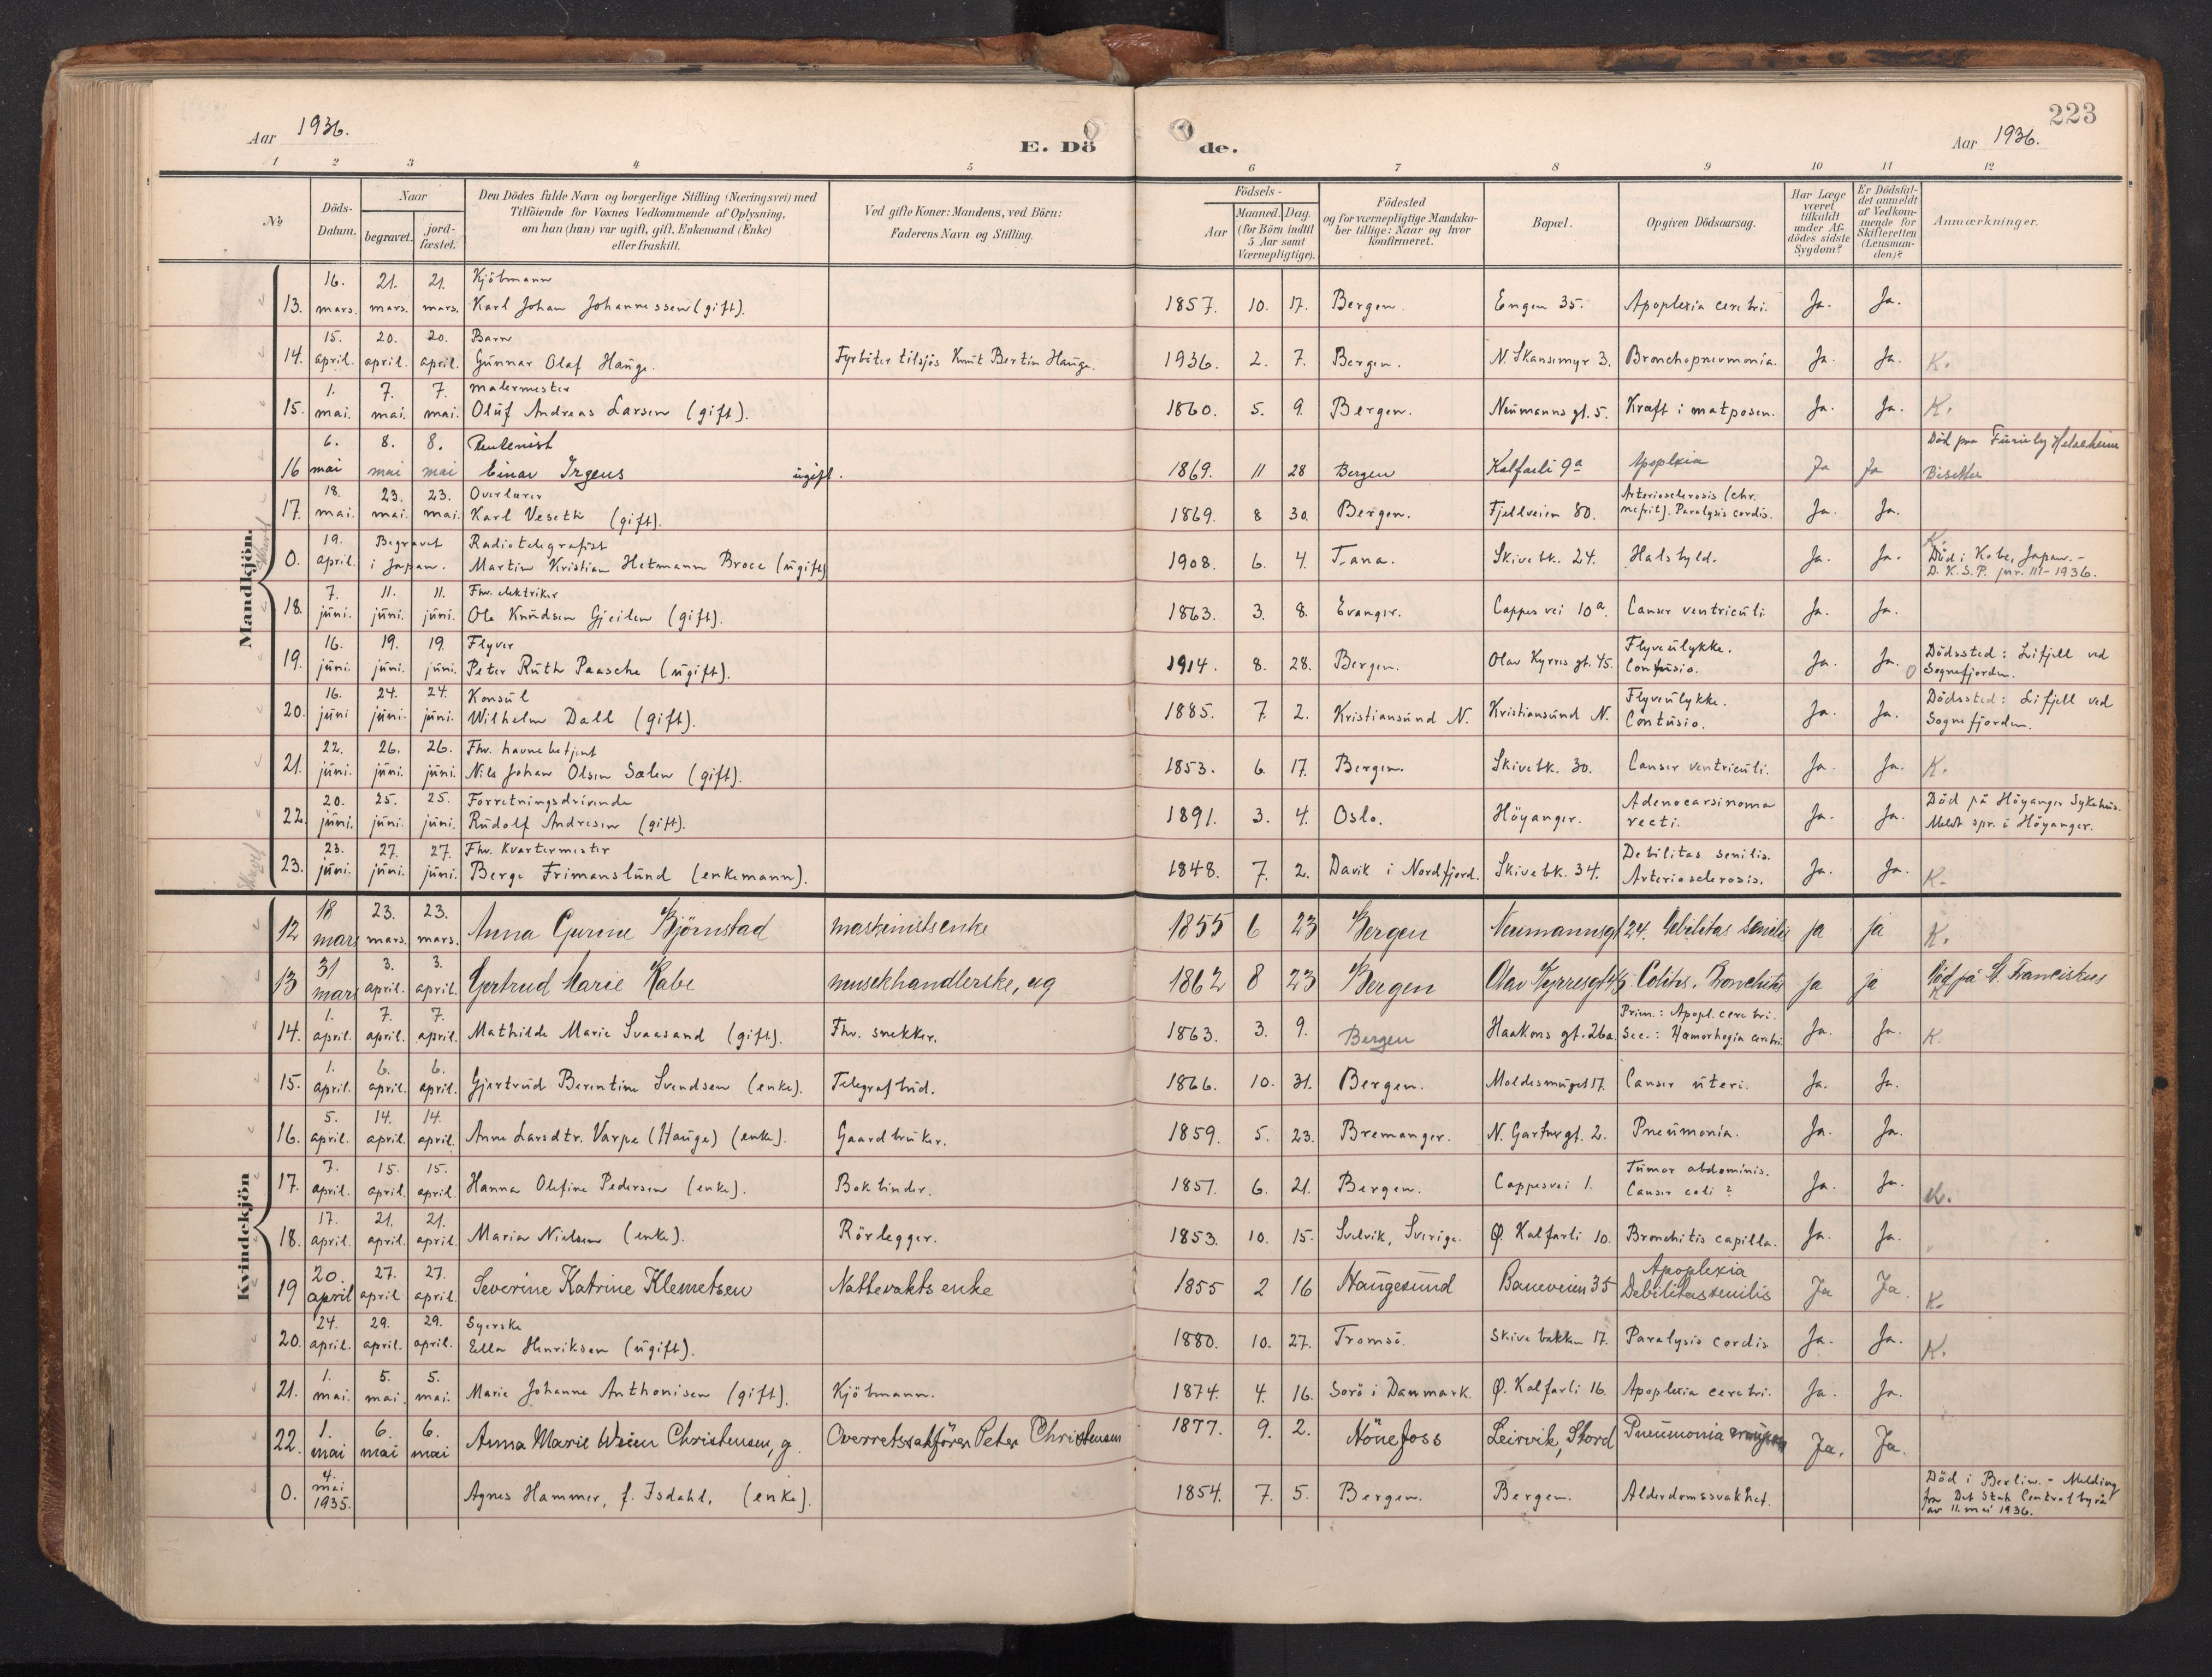 223
Aar 1936.
E. Dö
de.
Aar 1936.
1 2 3 4 5 6 7 8 9 10 11 12
№
Döds-
Datum.
Naar
begravet.
jord-
fæstet.
Den Dödes fulde Navn og borgerlige Stilling (Næringsvei) med
Tilföiende for Voxnes Vedkommende af Oplysning,
om han (hun) var ugift, gift, Enkemand (Enke)
eller fraskilt.
Ved gifte Koner: Mandens, ved Börn:
Faderens Navn og Stilling.
Födsels-
Aar
Maaned. Dag.
(for Börn indtil
5 Aar samt
Værnepligtige).
Födested
og for værnepligtige Mandska-
ber tillige: Naar og hvor
konfirmeret.
Bopæl.
Opgiven Dödsaarsag.
Har Læge
været
tilkaldt
under Af-
dödes sidste
Sygdom?
Er Dödsfal-
det anmeldt
af Vedkom-
mende for
Skifteretten
(Lensman-
den)?
Anmærkninger.
Mandkjön.
16. 21. 21. Kjöbmann
13. mars. mars. mars. Karl Johan Johannessen (gift). 1857. 10. 17. Bergen. Engen 35. Apoplexia cerebri. Ja. Ja.
15. 20. 20. Barn
14. april. april. april. Gunnar Olaf Hauge. Fyrbøter tilsjøs Knut Bertin Hauge. 1936. 2. 7. Bergen. N. Skansemyr 3. Bronchopneumonia. Ja. Ja. K.
1. 7. 7. malermester
15. mai. mai. mai. Oluf Andreas Larsen (gift). 1860. 5. 9. Bergen. Neumanns gt. 5. Kræft i matposen. Ja. Ja. K.
6. 8. 8. Rentenist Död paa
16 mai mai mai Einar Irgens ugift. 1869. 11 28 Bergen Kalfarli 9a Apoplexia Ja Ja
18. 23. 23. Overlærer Arteriosclerosis (chr.
17. mai. mai. mai. Karl Veseth (gift). 1869. 8 30. Bergen. Fjellveien 80. nefrit). Paralysis cordis. Ja. Ja.
19. Begravet Radiotelegrafist K.
0. april. i Japan. Martin Kristian Hetmann Broce (ugift) 1908. 6. 4. Tana. Skivebk. 24. Halsbyld. Ja. Ja. Död i Kobe, Japan. -
D. K. S. P. jnr. 111-1936.
7. 11. 11. Fhv. elektriker
18. juni. juni. juni. Ole Knudsen Gjeilen (gift). 1863. 3. 8. Evanger. Cappes vei 10a. Canser ventriculi Ja. Ja.
16. 19. 19. Flyver Flyveulykke. Dödssted: Lifjell ved
19. juni. juni. juni. Peter Ruth Paasche (ugift). 1914. 8. 28. Bergen. Olav Kyrres gt. 45. Contusio. Ja. Ja. Sognefjorden.
16. 24. 24. Konsul Flyveulykke. Dödssted: Lifjell ved
20. juni juni. juni. Wilhelm Dall (gift). 1885. 7. 2. Kristiansund N. Kristiansund N. Contusio. Ja. Ja. Sognefjorden.
22. 26. 26. Fhv. havnebetjent
21. juni. juni. juni. Nils Johan Olsen Sælen (gift). 1853. 6 17. Bergen. Skivebk. 30. Canser ventriculi. Ja. Ja. K.
20. 25. 25. Forretningsdrivende Adenocarsinoma Död på Höyanger Sykehus.
22. juni. juni. juni. Rudolf Andresen (gift). 1891. 3. 4. Oslo. Höyanger. recti. Ja. Ja. Meldt spr. i Höyanger.
23. 27. 27. Fhv. Kvartermester Debilitas senilis.
23. juni. juni. juni. Berge Frimanslund (enkemann). 1848. 7. 2. Davik i Nordfjord. Skivebk. 34. Arteriosclerosis. Ja. Ja. K.
Kvindekjön
18 23. 23.
12 mars mars. mars. Anna Gurine Björnstad maskinistsenke 1855 6 23 Bergen Neumannsgt 24. Debilitas senilis ja ja K.
31 3. 3.
13 mars april. april. Gertrud Marie Rabe musikhandlerske, ug 1862 8 23 Bergen Olav Kyrresgt 45 Colitis. Bronchitis ja ja Död på St. Franciskus
K
1. 7. 7. Prim.: Apopl. cerebri.
14. april. april. april. Mathilde Marie Svaasand (gift). Fhv. snekker. 1863. 3. 9. Bergen Haakons gt. 26a. Sec.: Hæmorhagia cerebri Ja. Ja. K.
1. 6. 6.
15. april. april. april. Gjertrud Berentine Svendsen (enke). Telegrafbud. 1866. 10. 31. Bergen. Moldesmuget 17. Canser uteri. Ja. Ja.
5. 14. 14.
16. april. april. april. Anne Larsdtr. Varpe (Hauge) (enke). Gaardbruker. 1859. 5. 23. Bremanger. N. Gartnergt. 2. Pneumonia. Ja. Ja.
7. 15. 15. Tumor abdominis.
17. april. april. april. Hanna Olefine Pedersen (enke). Bokbinder. 1851. 6. 21. Bergen. Cappesvei 1. Canser coli? Ja. Ja. K.
17. 21. 21.
18. april. april. april. Maria Nielsen (enke). Rörlegger. 1853. 10. 15. Sulvik, Sverige. Ø. Kalfarli 10. Bronchitis capilla. Ja. Ja.
20. 27. 27. Apoplexia
19 april april april Severine Katrine Klemetsen Nattevaktsenke 1855 2 16 Haugesund Baneveien 35 Debilitas senilis Ja Ja. K.
24. 29. 29. Syerske
20. april. april. april. Ella Henriksen (ugift). 1880. 10. 27. Tromsö. Skivebakken 17. Paralysis cordis Ja. Ja. K.
1. 5. 5.
21. mai. mai. mai. Marie Johanne Anthonisen (gift). Kjöbmann. 1874. 4. 16. Sorö i Danmark. Ø. Kalfarli 16. Apoplexia cerebri. Ja. Ja.
1. 6. 6.
22. mai mai mai Anna Marie Christensen, g. Overretssakförer Peter Christensen 1877. 9. 2. Hönefoss Leirvik, Stord Pneumonia Ja. Ja.
4. Död i Berlin. - Melding
0. mai Agnes Hammer, f. Isdahl, (enke). 1854. 7. 5. Bergen. Bergen. Alderdomssvakhet. fra Det Stat. Centralbyrå
1935. av 11. mai 1936.